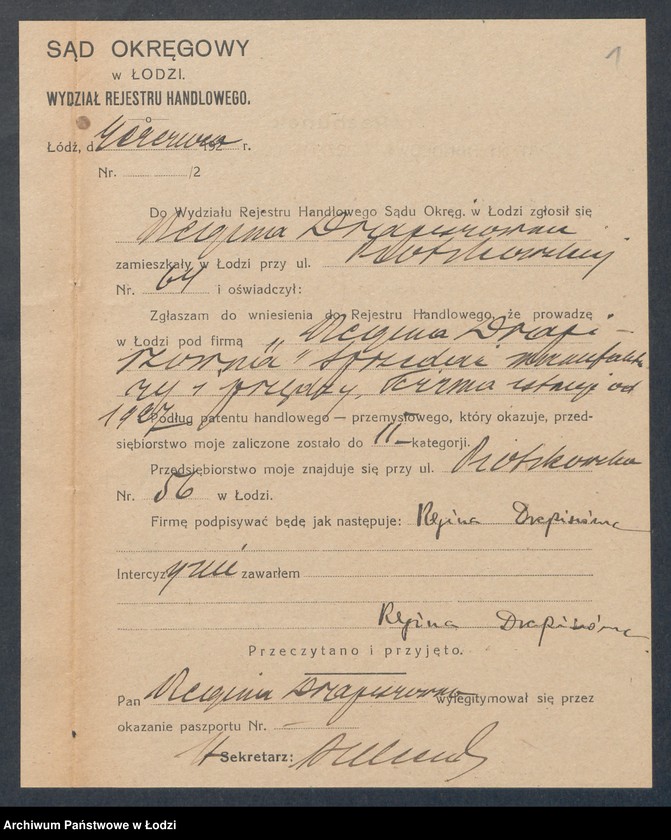 1
SĄD OKRĘGOWY
w ŁODZI.
WYDZIAŁ REJESTRU HANDLOWEGO.
Łódź, d. czerwca 192 r.
Nr. /2
Do Wydziału Rejestru Handlowego Sądu Okręg. w Łodzi zgłosił się
Regina Drapiszówna
zamieszkały w Łodzi przy ul. Piotrkowskiej
Nr. 64 i oświadczył:
Zgłaszam do wniesienia do Rejestru Handlowego, że prowadzę
w Łodzi pod firmą „Regina Drapi-
szówna" sprzedaż manufaktu-
ry i przędzy, firma istnieje od
1927
Podług patentu handlowego — przemysłowego, który okazuje, przed-
siębiorstwo moje zaliczone zostało do II kategorji.
Przedsiębiorstwo moje znajduje się przy ul. Piotrkowska
Nr. 56 w Łodzi.
Firmę podpisywać będę jak następuje: Regina Drapiszówna
Intercyz zawarłem
Regina Drapiszówna
Przeczytano i przyjęto.
Pan Regina Drapiszówna wylegitymował się przez
okazanie paszportu Nr. —
Sekretarz:
Archiwum Państwowe w Łodzi